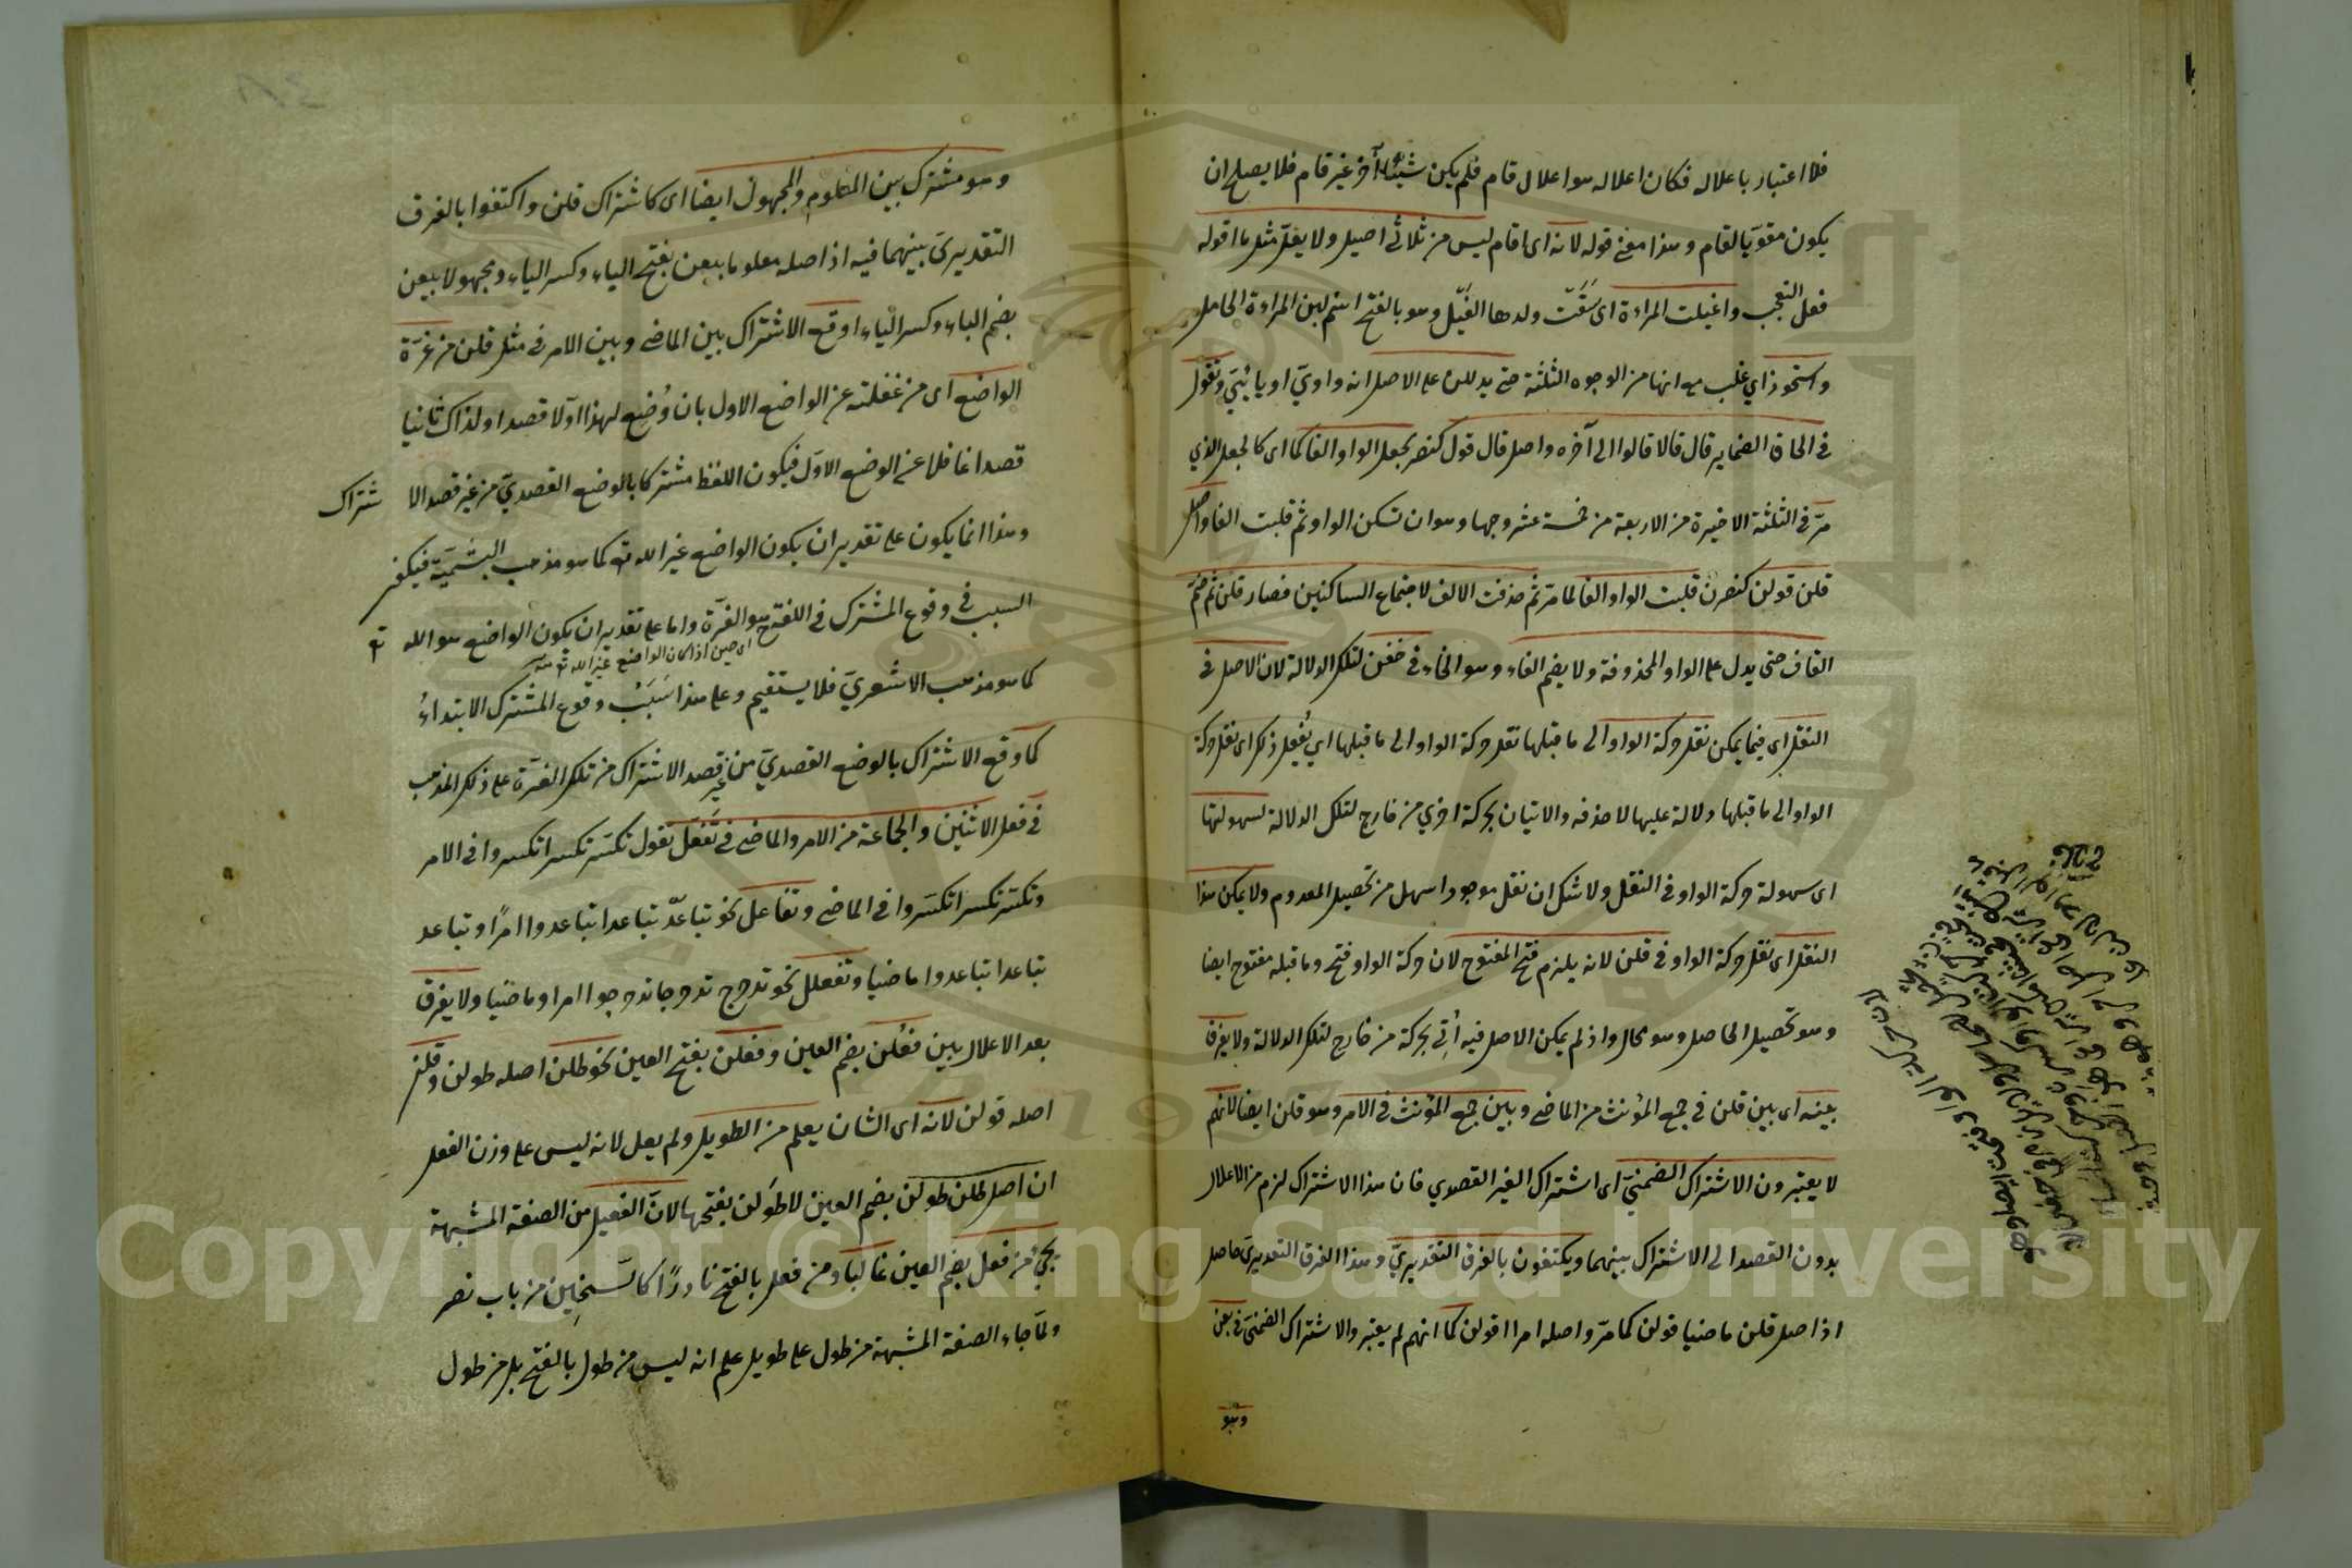 فلا اعتبار باعلاله فكان اعلاله هو اعلال قام فلم يكن شيئا آخر غير قام فلا يصلح ان
يكون مقويا لقام وهذا معنى قوله لانه اى اقام ليس من ثلاثى اصيل ولا يعل مثل ما اقوله
فعل التعجب واغيلت المراءة اى سقت ولدها الغيل وهو بالفتح اسم لبن المراءة الحامل
واستحوذ اي غلب مع انها من الوجوه الثلثة حتى يدللن على الاصل انه واوي او يائي وتقول
فى الحاق الضماير قال قالا قالوا الى آخره واصل قال قول كنصر بجعل الواو الفا كما اى كالجعل الذي
مر فى الثلثة الاخيرة من الاربعة من خمسة عشر وجها وهو ان تسكن الواو ثم قلبت الفا واصل
قلن قولن كنصرن قلبت الواو الفا لما مر ثم حذفت الالف لاجتماع الساكنين فصار قلن ثم ضم
القاف حتى يدل على الواو المحذوفة ولا يضم الفاء وهو الخاء فى خفن لتلك الدلالة لان الاصل فى
النقل اى فيما يمكن نقل حركة الواو الى ما قبلها نقل حركة الواو الى ما قبلها اي يفعل ذلك اى نقل حركة
الواو الى ما قبلها دلالة عليها لا حذفه والاتيان بحركة اخري من خارج لتلك الدلالة لسهولتها
اى سهولة حركة الواو فى النقل ولا شك ان نقل موجود اسهل من تحصيل المعدوم ولا يمكن هذا
النقل اى نقل حركة الواو فى قلن لانه يلزم فتح المفتوح لان حركة الواو فتح وما قبله مفتوح ايضا
وهو تحصيل الحاصل وهو محال واذ لم يكن الاصل فيه أتى بحركة من خارج لتلك الدلالة ولا يفرق
بينه اى بين قلن فى جمع المؤنث من الماضى وبين جمع المؤنث فى الامر وهو قلن ايضا لانهم
لا يعتبرون الاشتراك الضمنى اى اشتراك الغير القصدي فان هذا الاشتراك لزم من الاعلال
بدون القصد الى الاشتراك بينهما ويكتفون بالفرق التقديري وهذا الفرق التقديرى حاصل
اذ اصل قلن ماضيا قولن كما مر واصله امرا اقولن كما انهم لم يعتبروا الاشتراك الضمنى فى بعن
وهو
وهو مشترك بين المعلوم والمجهول ايضا اى كاشتراك قلن واكتفوا بالفرق
التقديرى بينهما فيه اذ اصله معلوما بيعن بفتح الباء وكسر الياء ومجهولا بيعن
بضم الباء وكسر الياء او قع الاشتراك بين الماضى وبين الامر فى مثل قلن من غرة
الواضع اى من غفلته عن الواضع الاول بان وضع لهذا اولا قصدا ولذاك ثانيا
قصدا غافلا عن الوضع الاول فيكون اللفظ مشتركا بالوضع القصدي من غير قصد الاشتراك
وهذا انما يكون على تقدير ان يكون الواضع غير الله تع كما هو مذهب البشمية فيكفى
السبب فى وقوع المشترك فى اللغة هو الغرة واما على تقدير ان يكون الواضع هو الله تع
اى حين اذا كان الواضع غير الله تع
كما هو مذهب الاشعري فلا يستقيم وعلى هذا سبب وقوع المشترك الابتداء
كما وقع الاشتراك بالوضع القصدي من غير قصد الاشتراك من تلك الغرة على ذلك المذهب
فى فعل الاثنين والجماعة من الامر والماضى فى تفعل تقول تكسر تكسرا تكسروا فى الامر
وتكسر تكسرا تكسروا فى الماضى وتفاعل نحو تباعد تباعدا تباعدوا امرا وتباعد
تباعدا تباعدوا ماضيا وتفعلل نحو تدحرج تدحرجا تدحرجوا امرا وماضيا ولا يفرق
بعد الاعلال بين فعلن بضم العين وفعلن بفتح العين نحو طلن اصله طولن وقلن
اصله قولن لانه اى الشان يعلم من الطويل ولم يعل لانه ليس على وزن الفعل
ان اصل طلن طولن بضم العين لا طولن بفتحها لان الفعيل من الصفة المشبهة
يجئ من فعل بضم العين غالبا ومن فعل بالفتح نادرا كالسخين من باب نصر
ولما جاء الصفة المشبهة من طول على طويل علم انه ليس من طول بالفتح بل من طول
Copyright © King Saud University